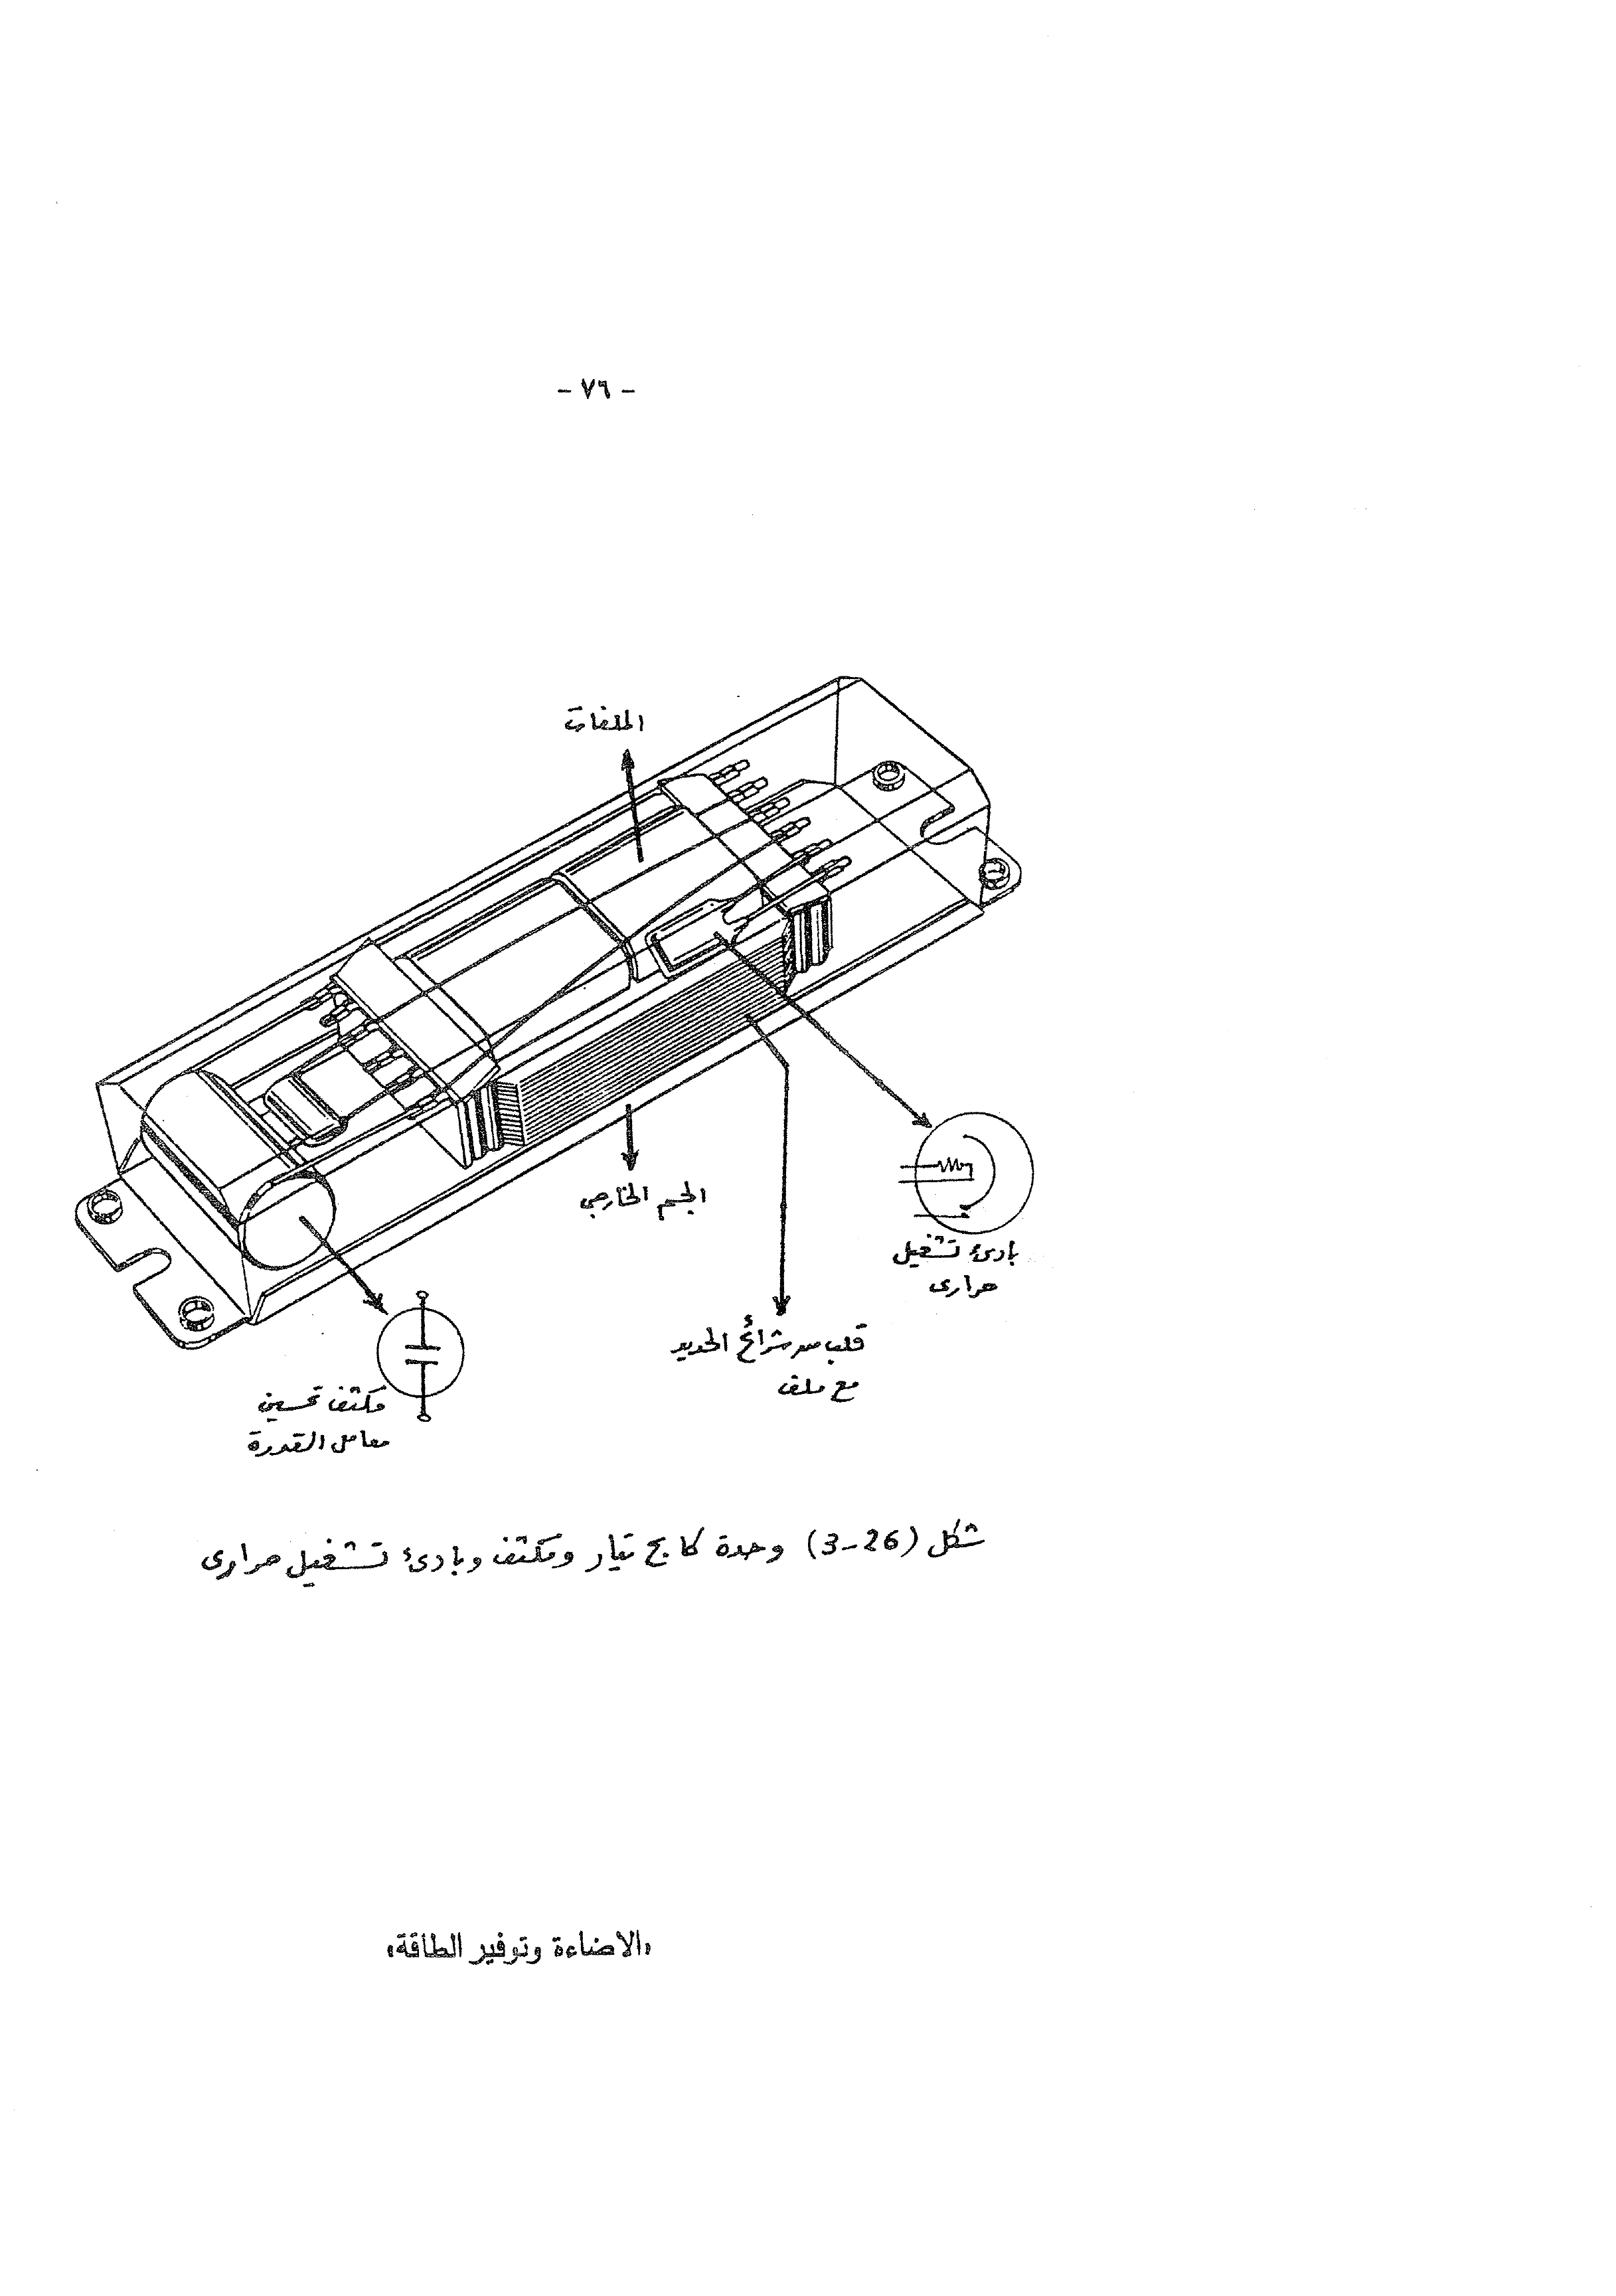 - ٧٦ -
الملفات
الجسم الخارجي
بادئ تشغيل
حرارى
قلب من شرائح الحديد
مع ملف
مكثف تحسين
معامل القدرة
شكل (3-26) وحدة كابح تيار ومكثف وبادئ تشغيل حرارى
«الاضاءة وتوفير الطاقة»